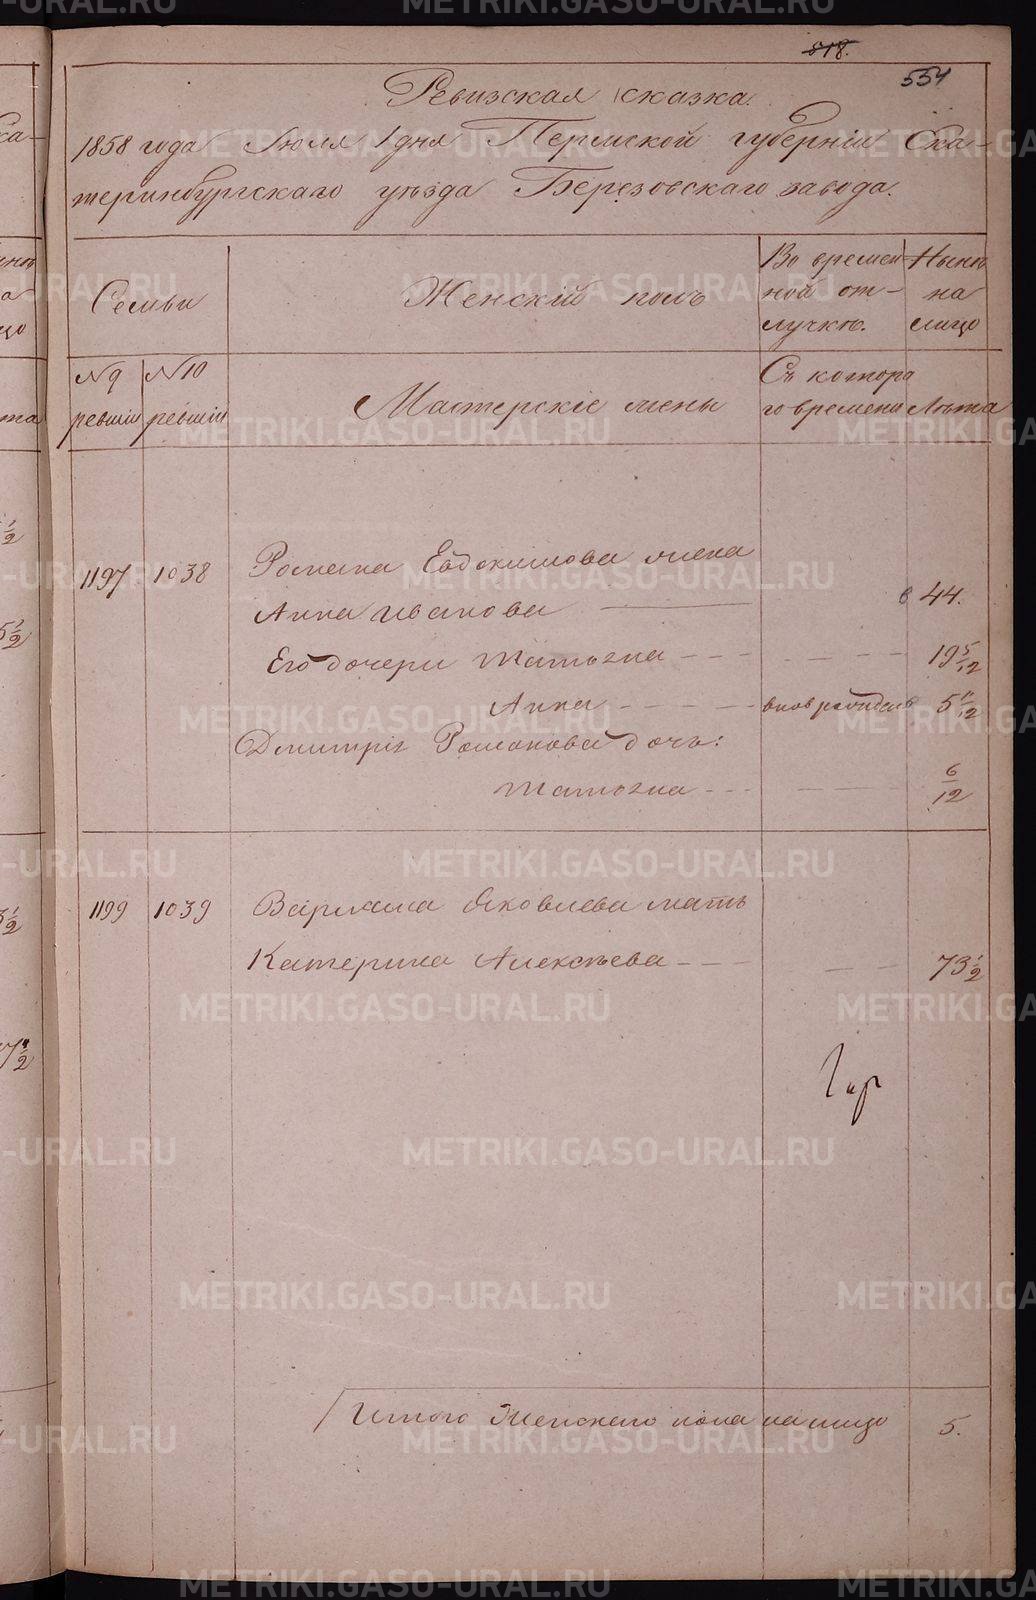 518.
551
Ревизская сказка.
1858 года Июля 1 дня Пермской губернии Ека-
теринбургскаго уѣзда Березовскаго завода.
Семьи
Женскій полъ
Во времен
ной от-
лучкѣ.
Нынѣ
на
лицо
№ 9
ревизіи
№ 10
ревизіи
Мастерскіе жены
Съ котора
го времени
Лѣта
1197 1038 Романа Евдокимова жена
Анна Иванова 44.
Его дочери Татьяна 19 5/12
Анна вновь рожден 5 11/12
Дмитрія Романова дочь:
Татьяна 6/12
1199 1039 Варлама Яковлева мать
Катерина Алексѣева 73 1/2
Итого Женскаго пола на лицо 5.
METRIKI.GASO-URAL.RU